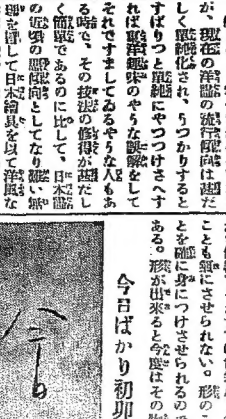 が、現在の洋畫の流行傾向は甚だ
しく單純化され、うつかりすると
すばりつと單純にやつつけさへす
れば原始趣味のやうな誤解をして
それですましてゐるやうな人もあ
る時で、その技法の修得が甚だし
く簡單であるのに比して、日本畫
の近頃の傾向としてなり難い無
理を冒して日本繪具を以て洋風な
ことも氣にさせられない。形の
とを確に身につけさせられるの
ある。形が出來ると今度はその
今日ばかり初卯